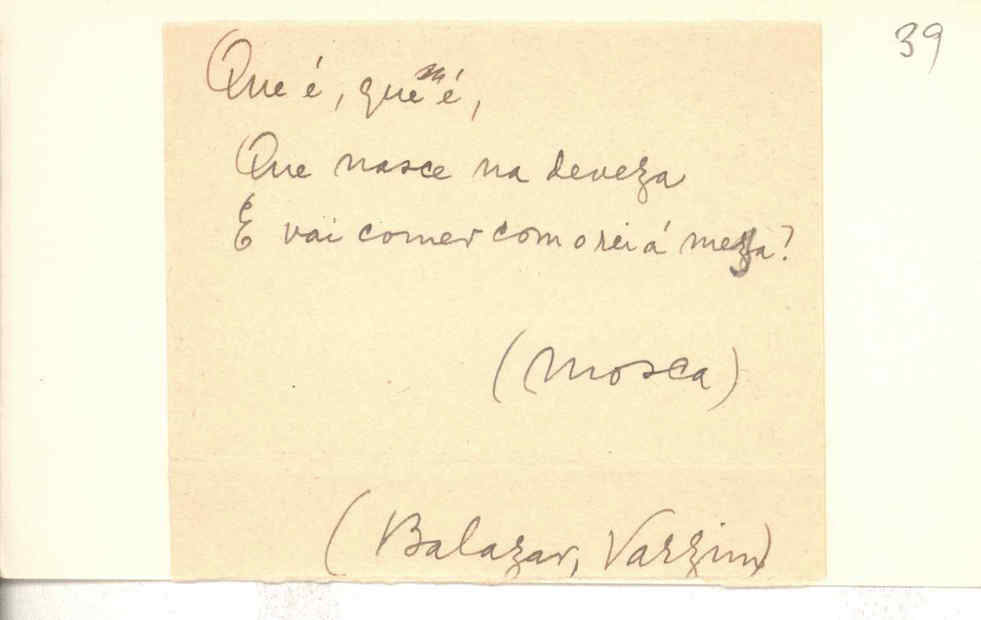 39
Que é, quem é,
Que nasce na deveza
E vai comer com o rei á mesa?
(Mosca)
(Balazar, Varzim)